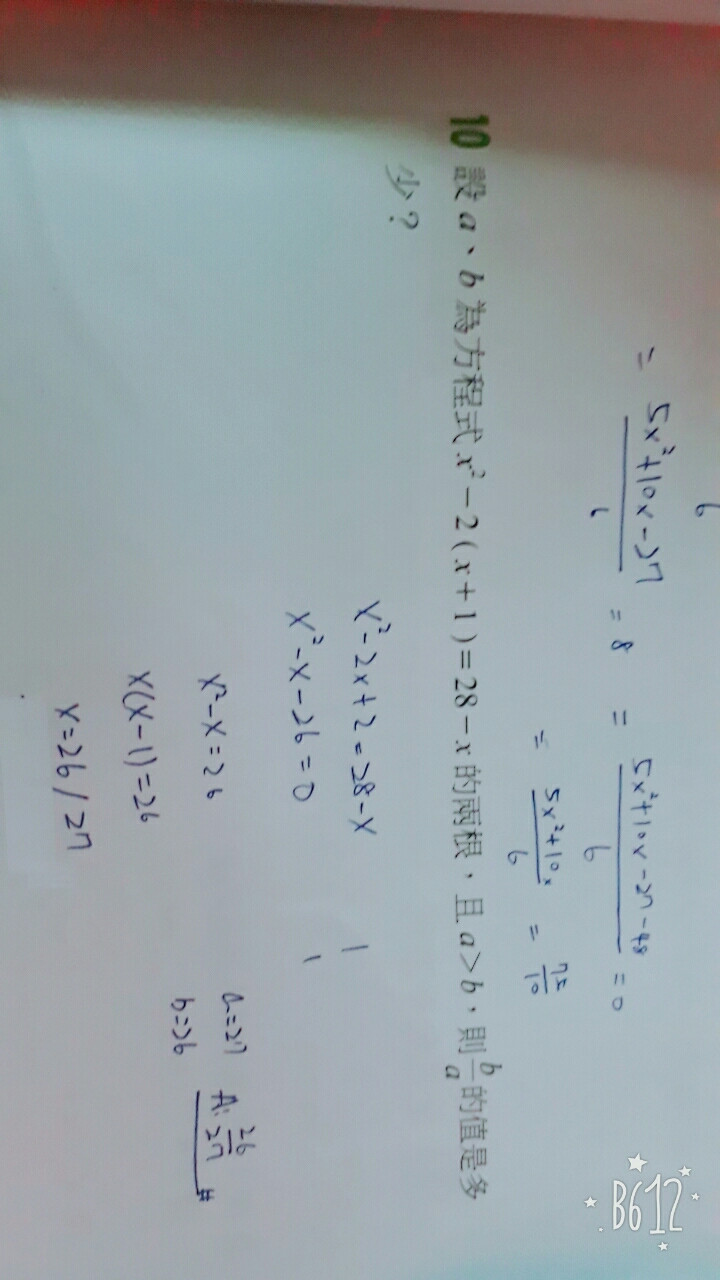 6
= 5x²+10x-27 / 6 = 8 = 5x²+10x-27-48 / 6 = 0
= 5x²+10x / 6 = 75 / 10
10 設 a、b 為方程式 x²-2(x+1)=28-x 的兩根，且 a>b，則 b/a 的值是多
少？
x²-2x+2=28-x
x²-x-26=0
x²-x=26
x(x-1)=26
x=26/27
a=27
b=26
A: 26/27 #
B612